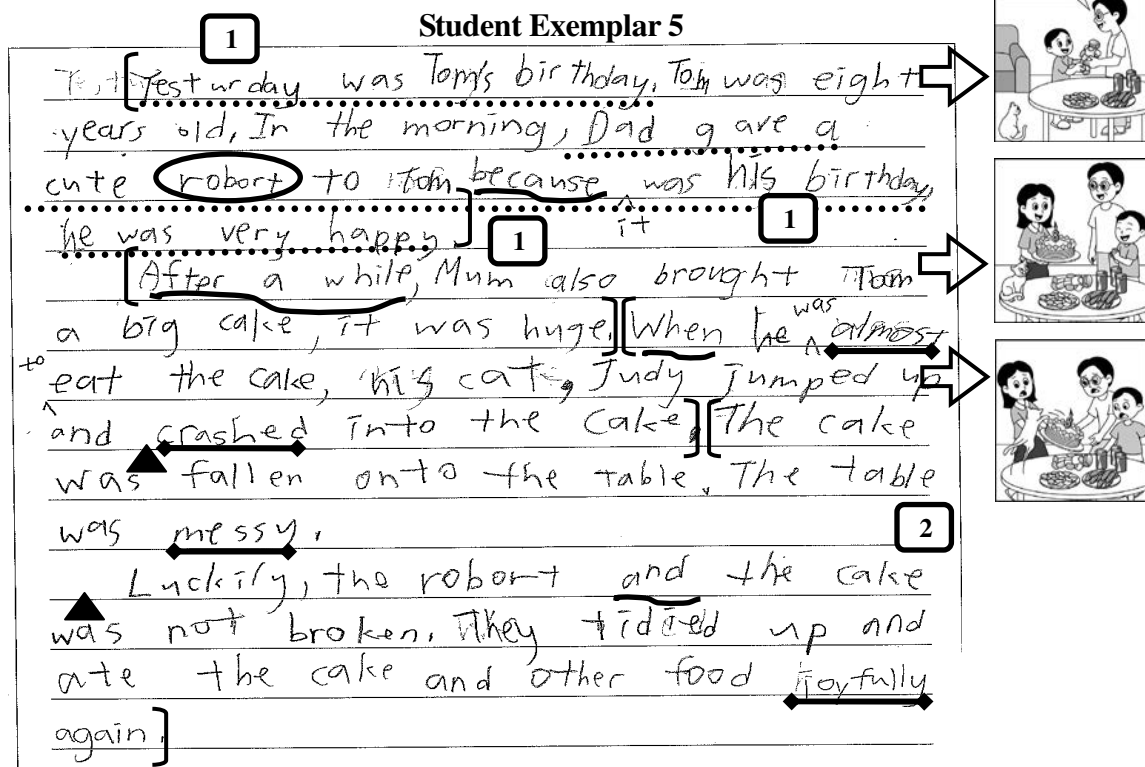 Student Exemplar 5
1
Yesturday was Tom's birthday. Tom was eight
years old, In the morning, Dad gave a
cute robort to Tom because was his birthday,
it
he was very happy.
1
1
After a while, Mum also brought Tom
a big cake, it was huge. When he was almost
to eat the cake, his cat, Judy jumped up
and crashed into the cake. The cake
was fallen onto the table. The table
was messy.
2
Luckily, the robort and the cake
was not broken. They tidied up and
ate the cake and other food joyfully
again.